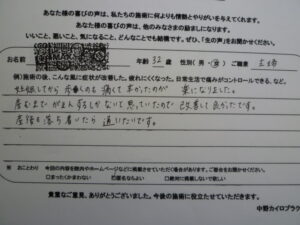 あなた様の喜びの声は、私たちの施術に何よりも情熱とやりがいを与えてくれます。
あなた様の喜びの声は、他のみなさまの励ましになります。
いいこと、悪いこと、気になること、どんなことでも結構です。ぜひ、「生の声」をお聞かせください。
お名前 年齢 32 歳 性別(男・女) ご職業 主婦
例)施術の後、こんな風に症状が改善した。疲れにくくなった。日常生活で痛みがコントロールできる、など。
妊娠してから 歩くのも 痛くて 辛かったのが 楽になりました。
産むまで がまんするしかないと思っていたので 改善して良かったです。
産後も落ち着いたら 通いたいです。
※ おことわり 今回の内容を院内やホームページなどに掲載させていただく場合があります。ご都合をお聞かせください。
□まったくかまわない □匿名ならよい □絶対に掲載しないで欲しい
貴重なご意見、ありがとうございました。今後の施術に役立たせていただきます。
中野カイロプラク